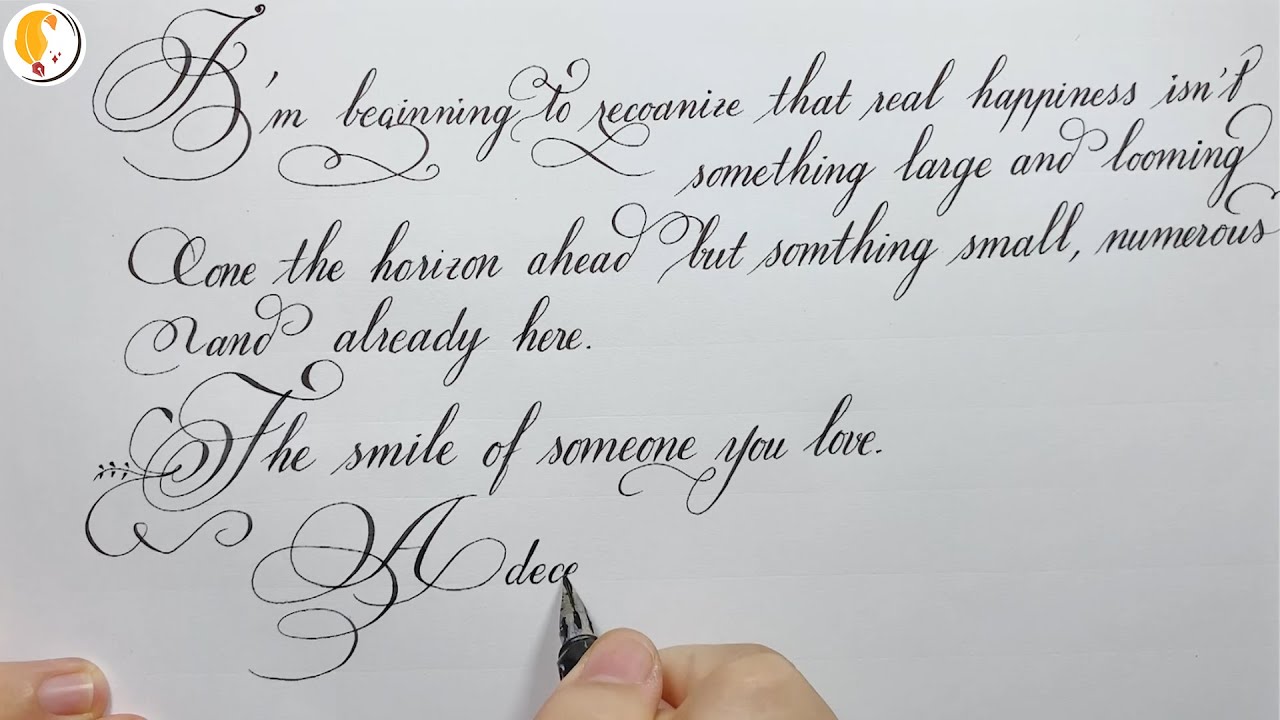 I'm beginning to recognize that real happiness isn't
something large and looming
one the horizon ahead but somthing small, numerous
and already here.
The smile of someone you love.
A dece